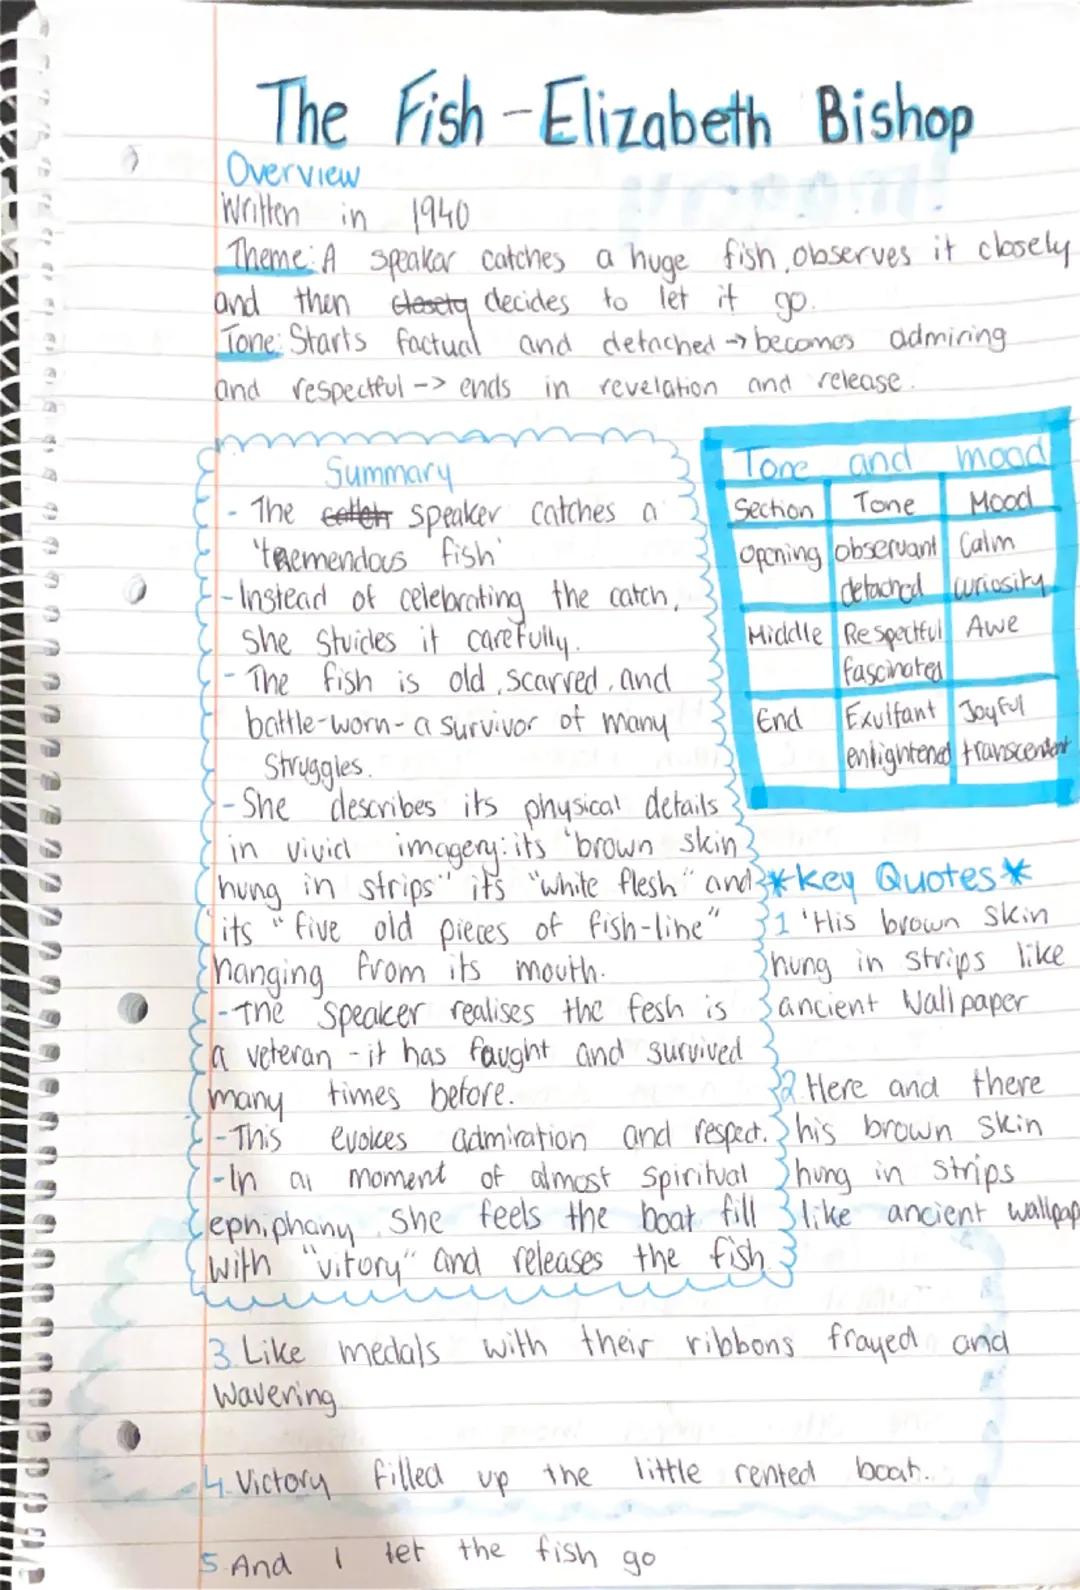 The Fish - Elizabeth Bishop
Overview
Written in 1940
Theme: A speakar catches a huge fish, observes it closely
and then closely decides to let it go.
Tone: Starts factual and detached -> becomes admiring
and respectful -> ends in revelation and release.
Summary
- The catch speaker catches a
'tremendous fish'
- Instead of celebrating the catch,
she stuides it carefully.
- The fish is old, scarred, and
battle-worn - a survivor of many
struggles.
- She describes its physical details
in vivid imagery: its "brown skin
hung in strips" its "white flesh" and
its "five old pieces of fish-line"
hanging from its mouth.
- The speaker realises the fesh is
a veteran - it has faught and survived
many times before.
- This evokes admiration and respect.
- In a moment of almost spiritual
ephiphany, she feels the boat fill
with "vitory" and releases the fish.
Tone and mood
Section Tone Mood
Opening observant Calm
detached curiosity
Middle Respectful Awe
fascinated
End Exultant Joyful
enlightened transcendent
*Key Quotes*
1 'His brown skin
hung in strips like
ancient Wallpaper
2. Here and there
his brown skin
hung in strips
like ancient wallpap
3. Like medals with their ribbons frayed and
wavering.
4. Victory filled up the little rented boat..
5. And I let the fish go